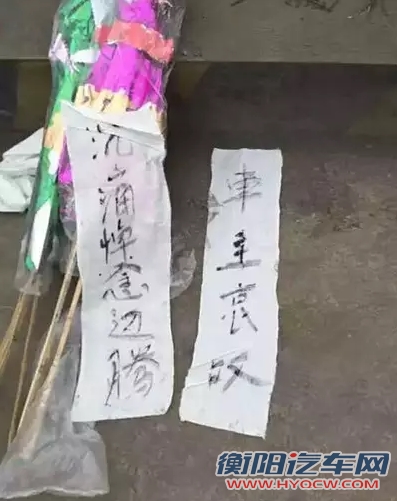 沉痛悼念迈腾
車主哀叹
衡阳汽车网
WWW.HYQCW.COM